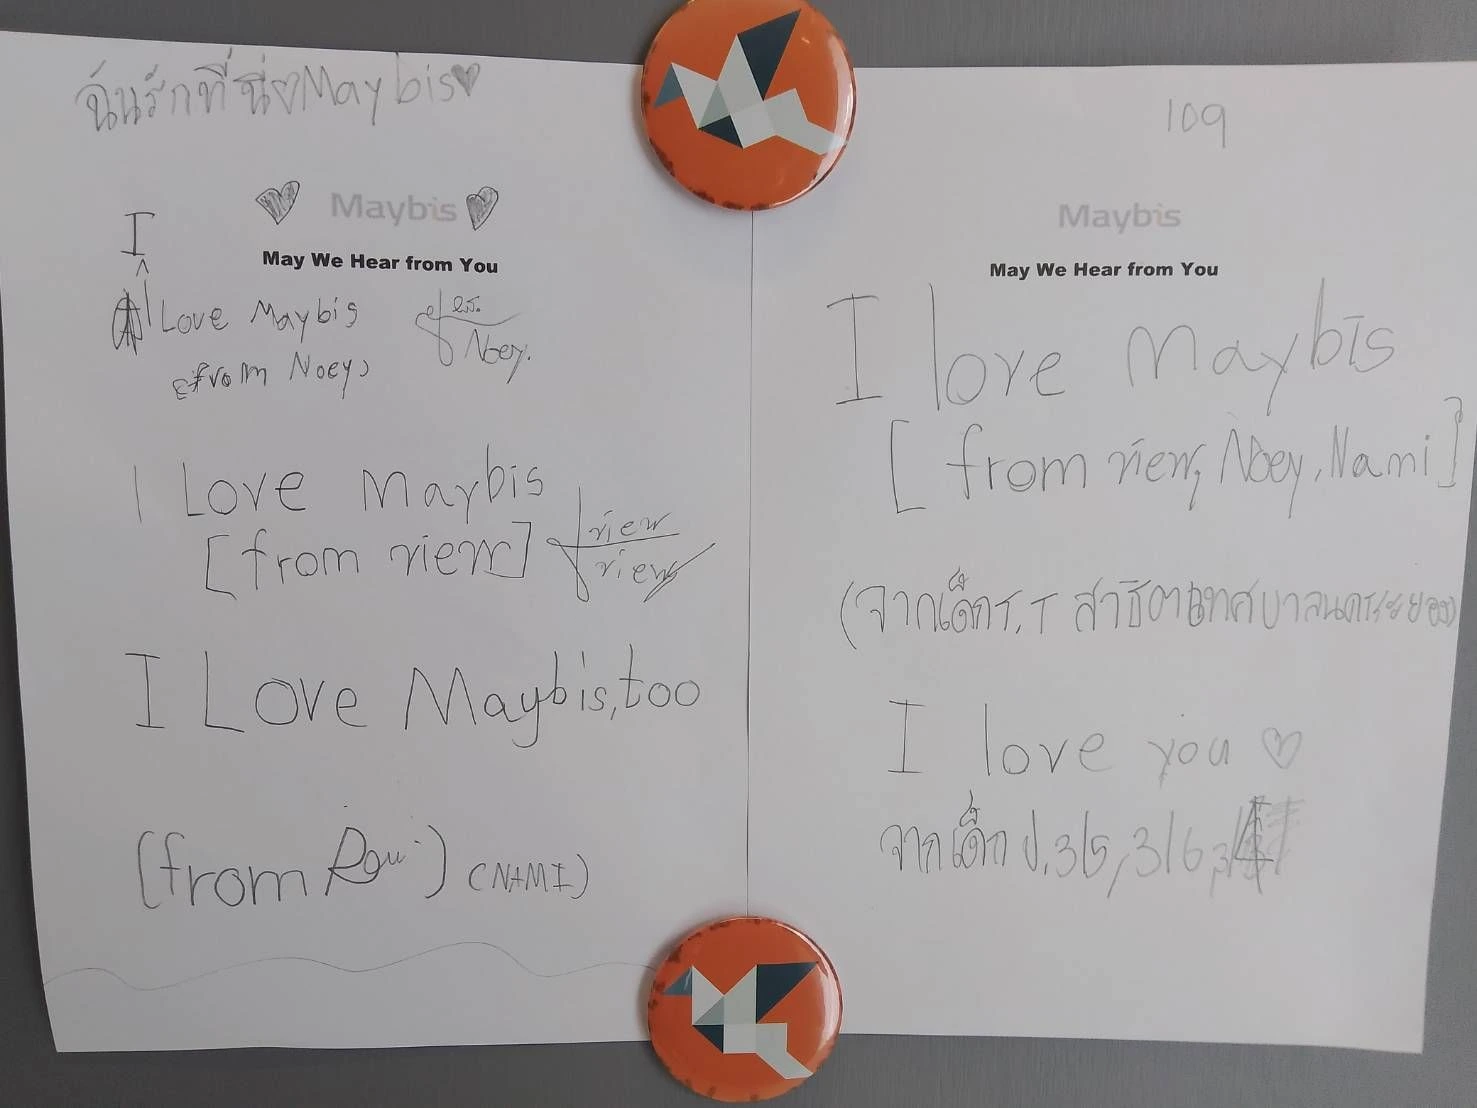 ฉันรักที่นี่Maybis
Maybis
May We Hear from You
I
Love Maybis
from Noey
ด.ญ.
Noey.
I Love Maybis
[from view]
view
view
I Love Maybis, too
(from
) (NAMI)
109
Maybis
May We Hear from You
I love Maybis
[ from view, Noey, Nami]
(จากเด็กร.ร สาธิตเทศบาลนครระยอง)
I love you
จากเด็ก ป.3/5, 3/6,